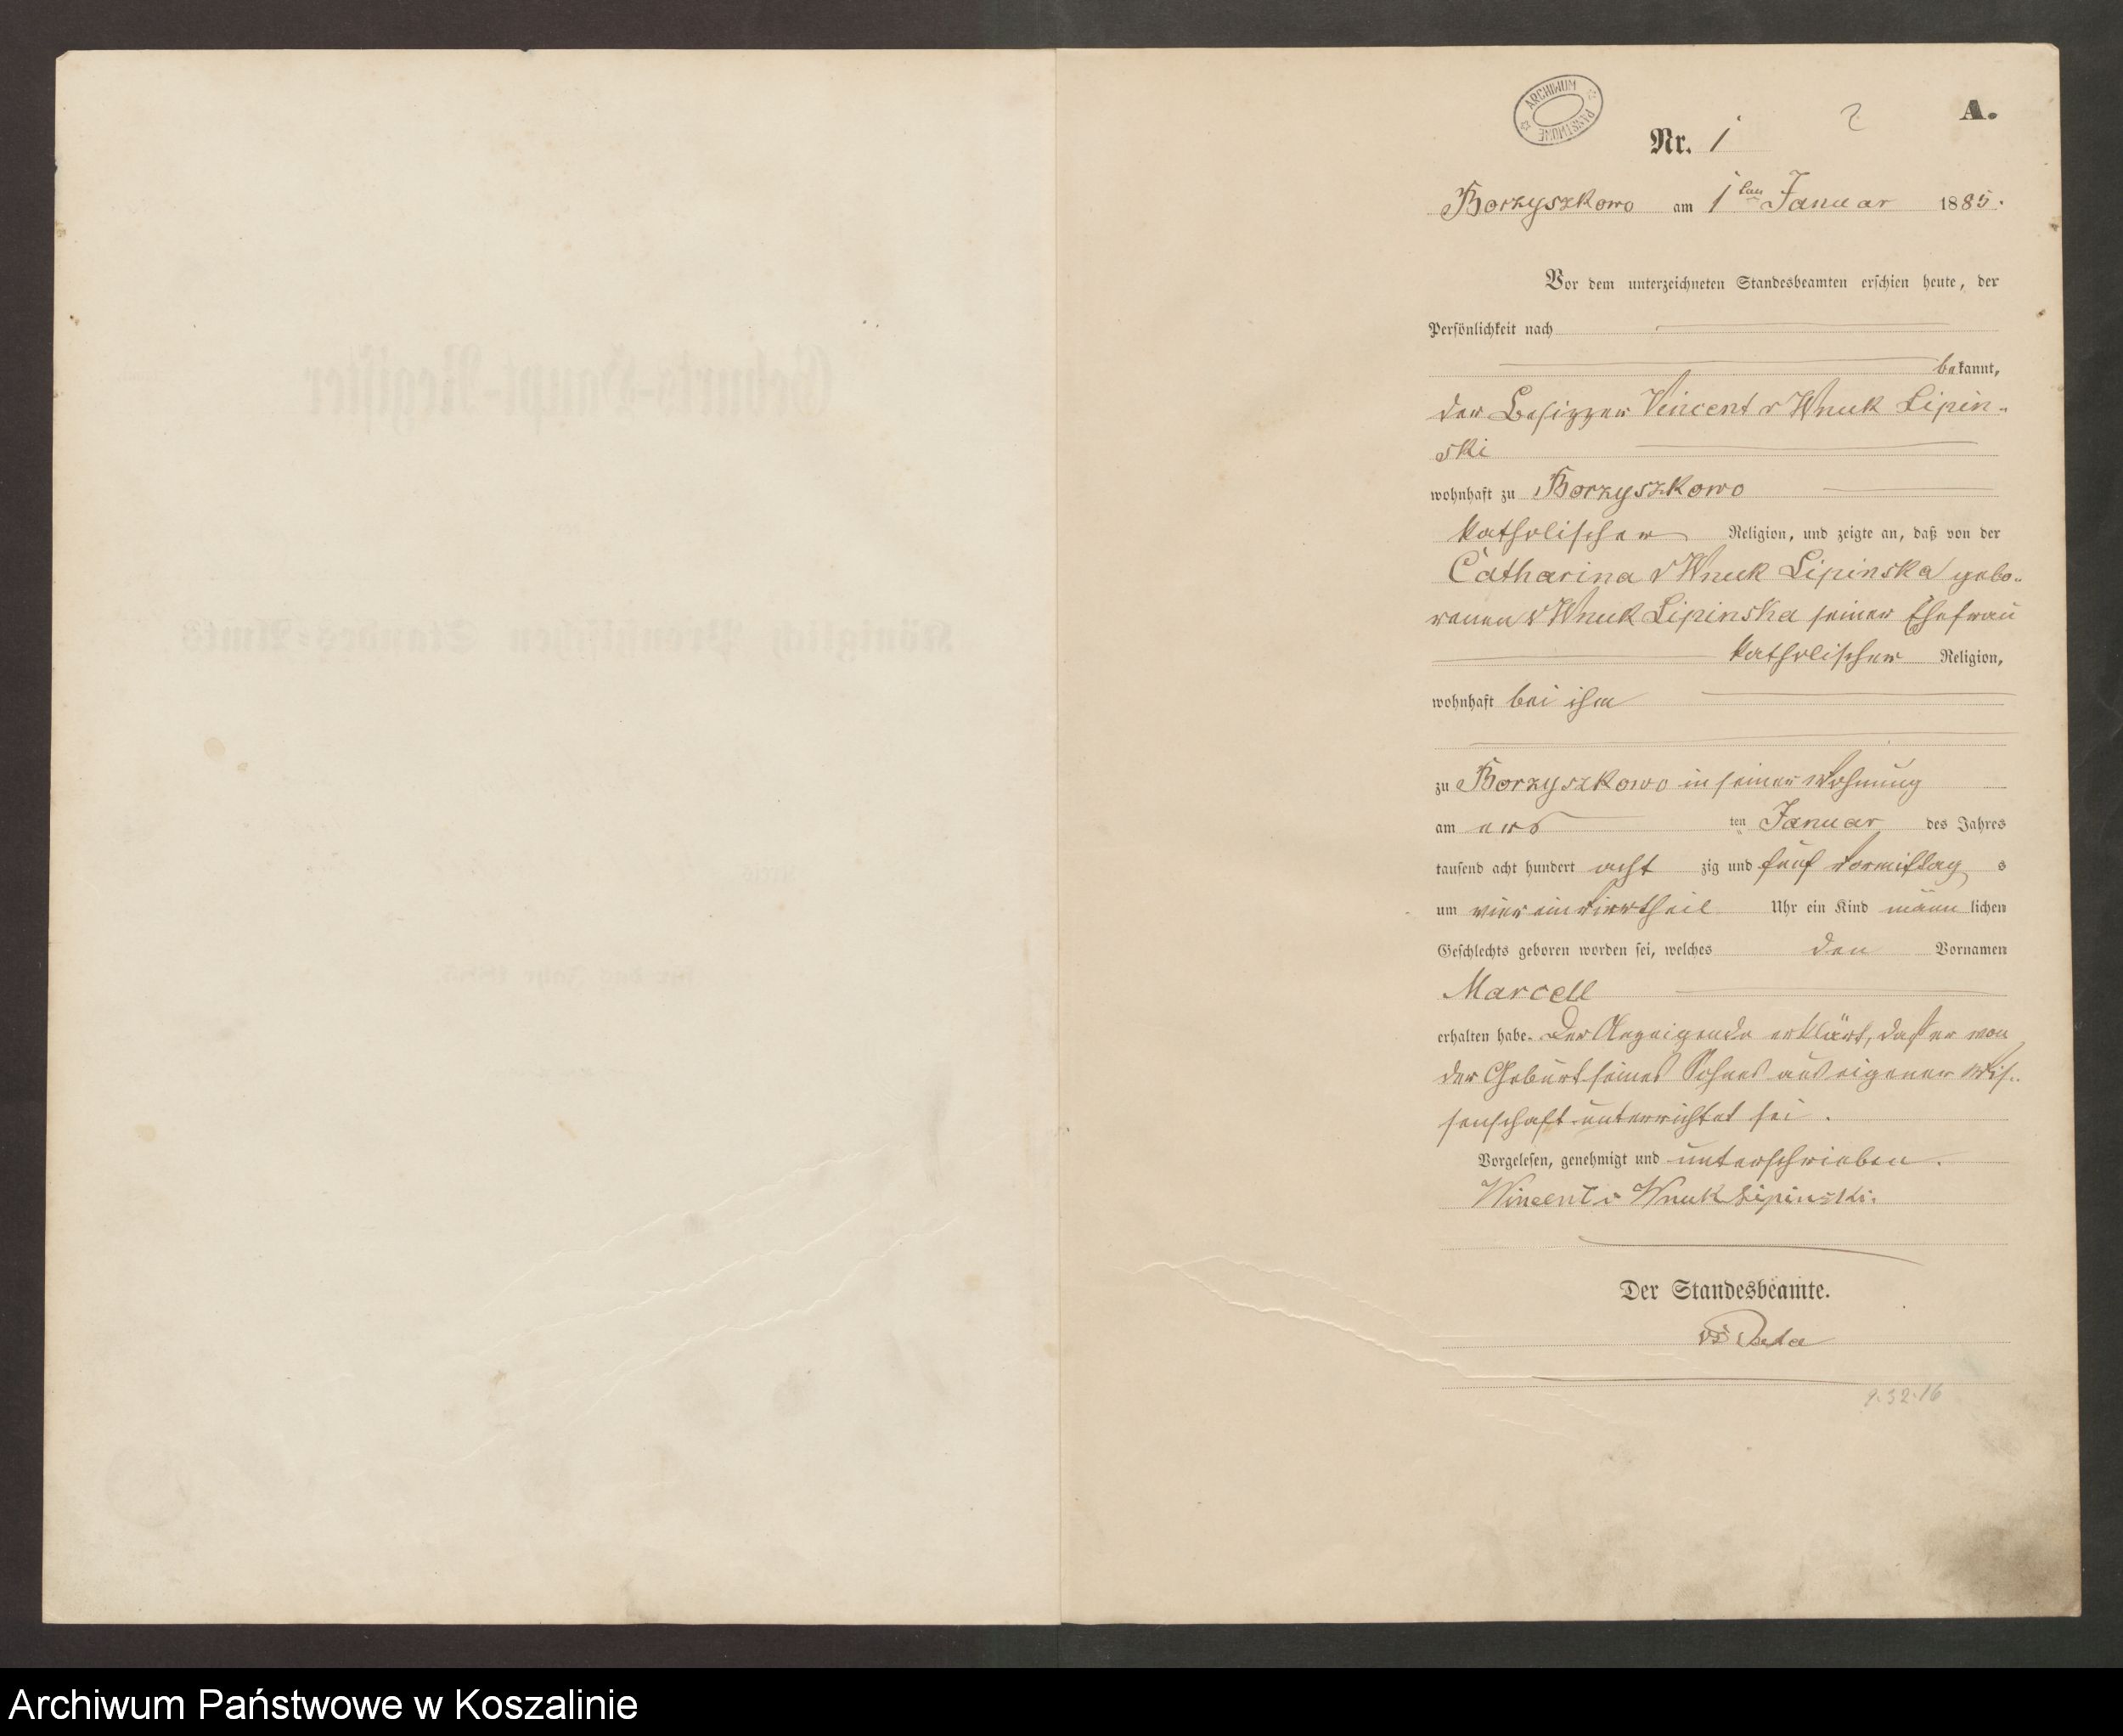 Geburts-Haupt-Register
Königlich Preußischen Standes-Amts
Kreis
für das Jahr 1885.
ARCHIWUM PAŃSTWOWE
2
A.
Nr. 1
Borzyszkowo am 1ten Januar 1885.
Vor dem unterzeichneten Standesbeamten erschien heute, der
Persönlichkeit nach
bekannt,
der Besitzer Vincent v Wnuk Lipin-
ski
wohnhaft zu Borzyszkowo
katholischer Religion, und zeigte an, daß von der
Catharina v Wnuk Lipinska gebo-
renen v Wnuk Lipinska seiner Ehefrau
katholischer Religion,
wohnhaft bei ihm
zu Borzyszkowo in seiner Wohnung
am ers ten Januar des Jahres
tausend acht hundert acht zig und fünf Vormittag s
um vier ein Viertheil Uhr ein Kind männ lichen
Geschlechts geboren worden sei, welches den Vornamen
Marcell
erhalten habe. Der Anzeigende erklärt, daß er von
der Geburt seines Sohnes aus eigener Wis-
senschaft unterrichtet sei.
Vorgelesen, genehmigt und unterschrieben.
Wincent v Wnuk Lipinski.
Der Standesbeamte.
9.32.16
Archiwum Państwowe w Koszalinie